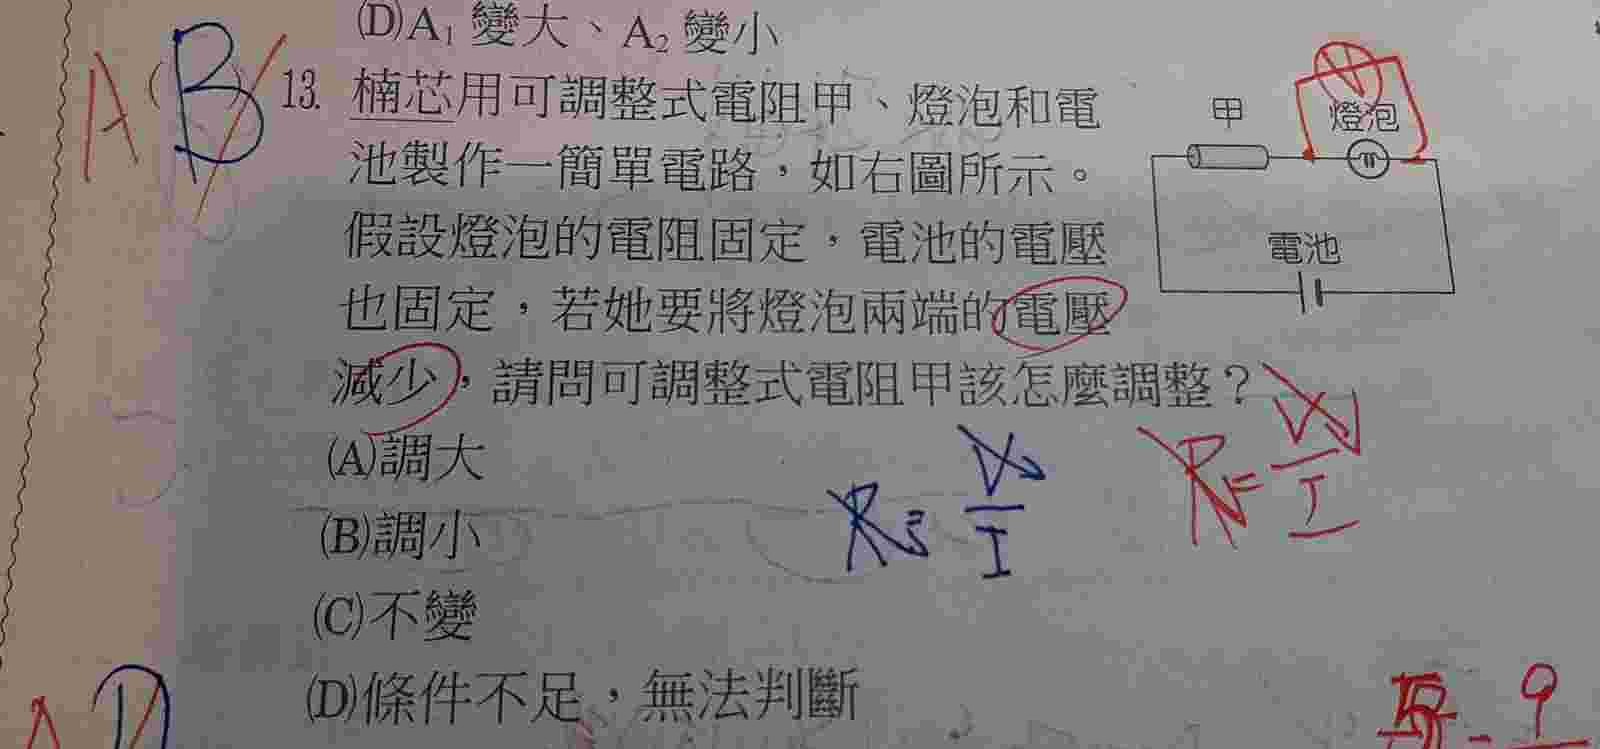 (D)A₁ 變大、A₂ 變小
A (B) 13. 楠芯用可調整式電阻甲、燈泡和電
池製作一簡單電路，如右圖所示。
假設燈泡的電阻固定，電池的電壓
也固定，若她要將燈泡兩端的電壓
減少，請問可調整式電阻甲該怎麼調整？
甲
燈泡
V
電池
(A)調大
(B)調小
(C)不變
(D)條件不足，無法判斷
R = V/I
R = V/I
D
9